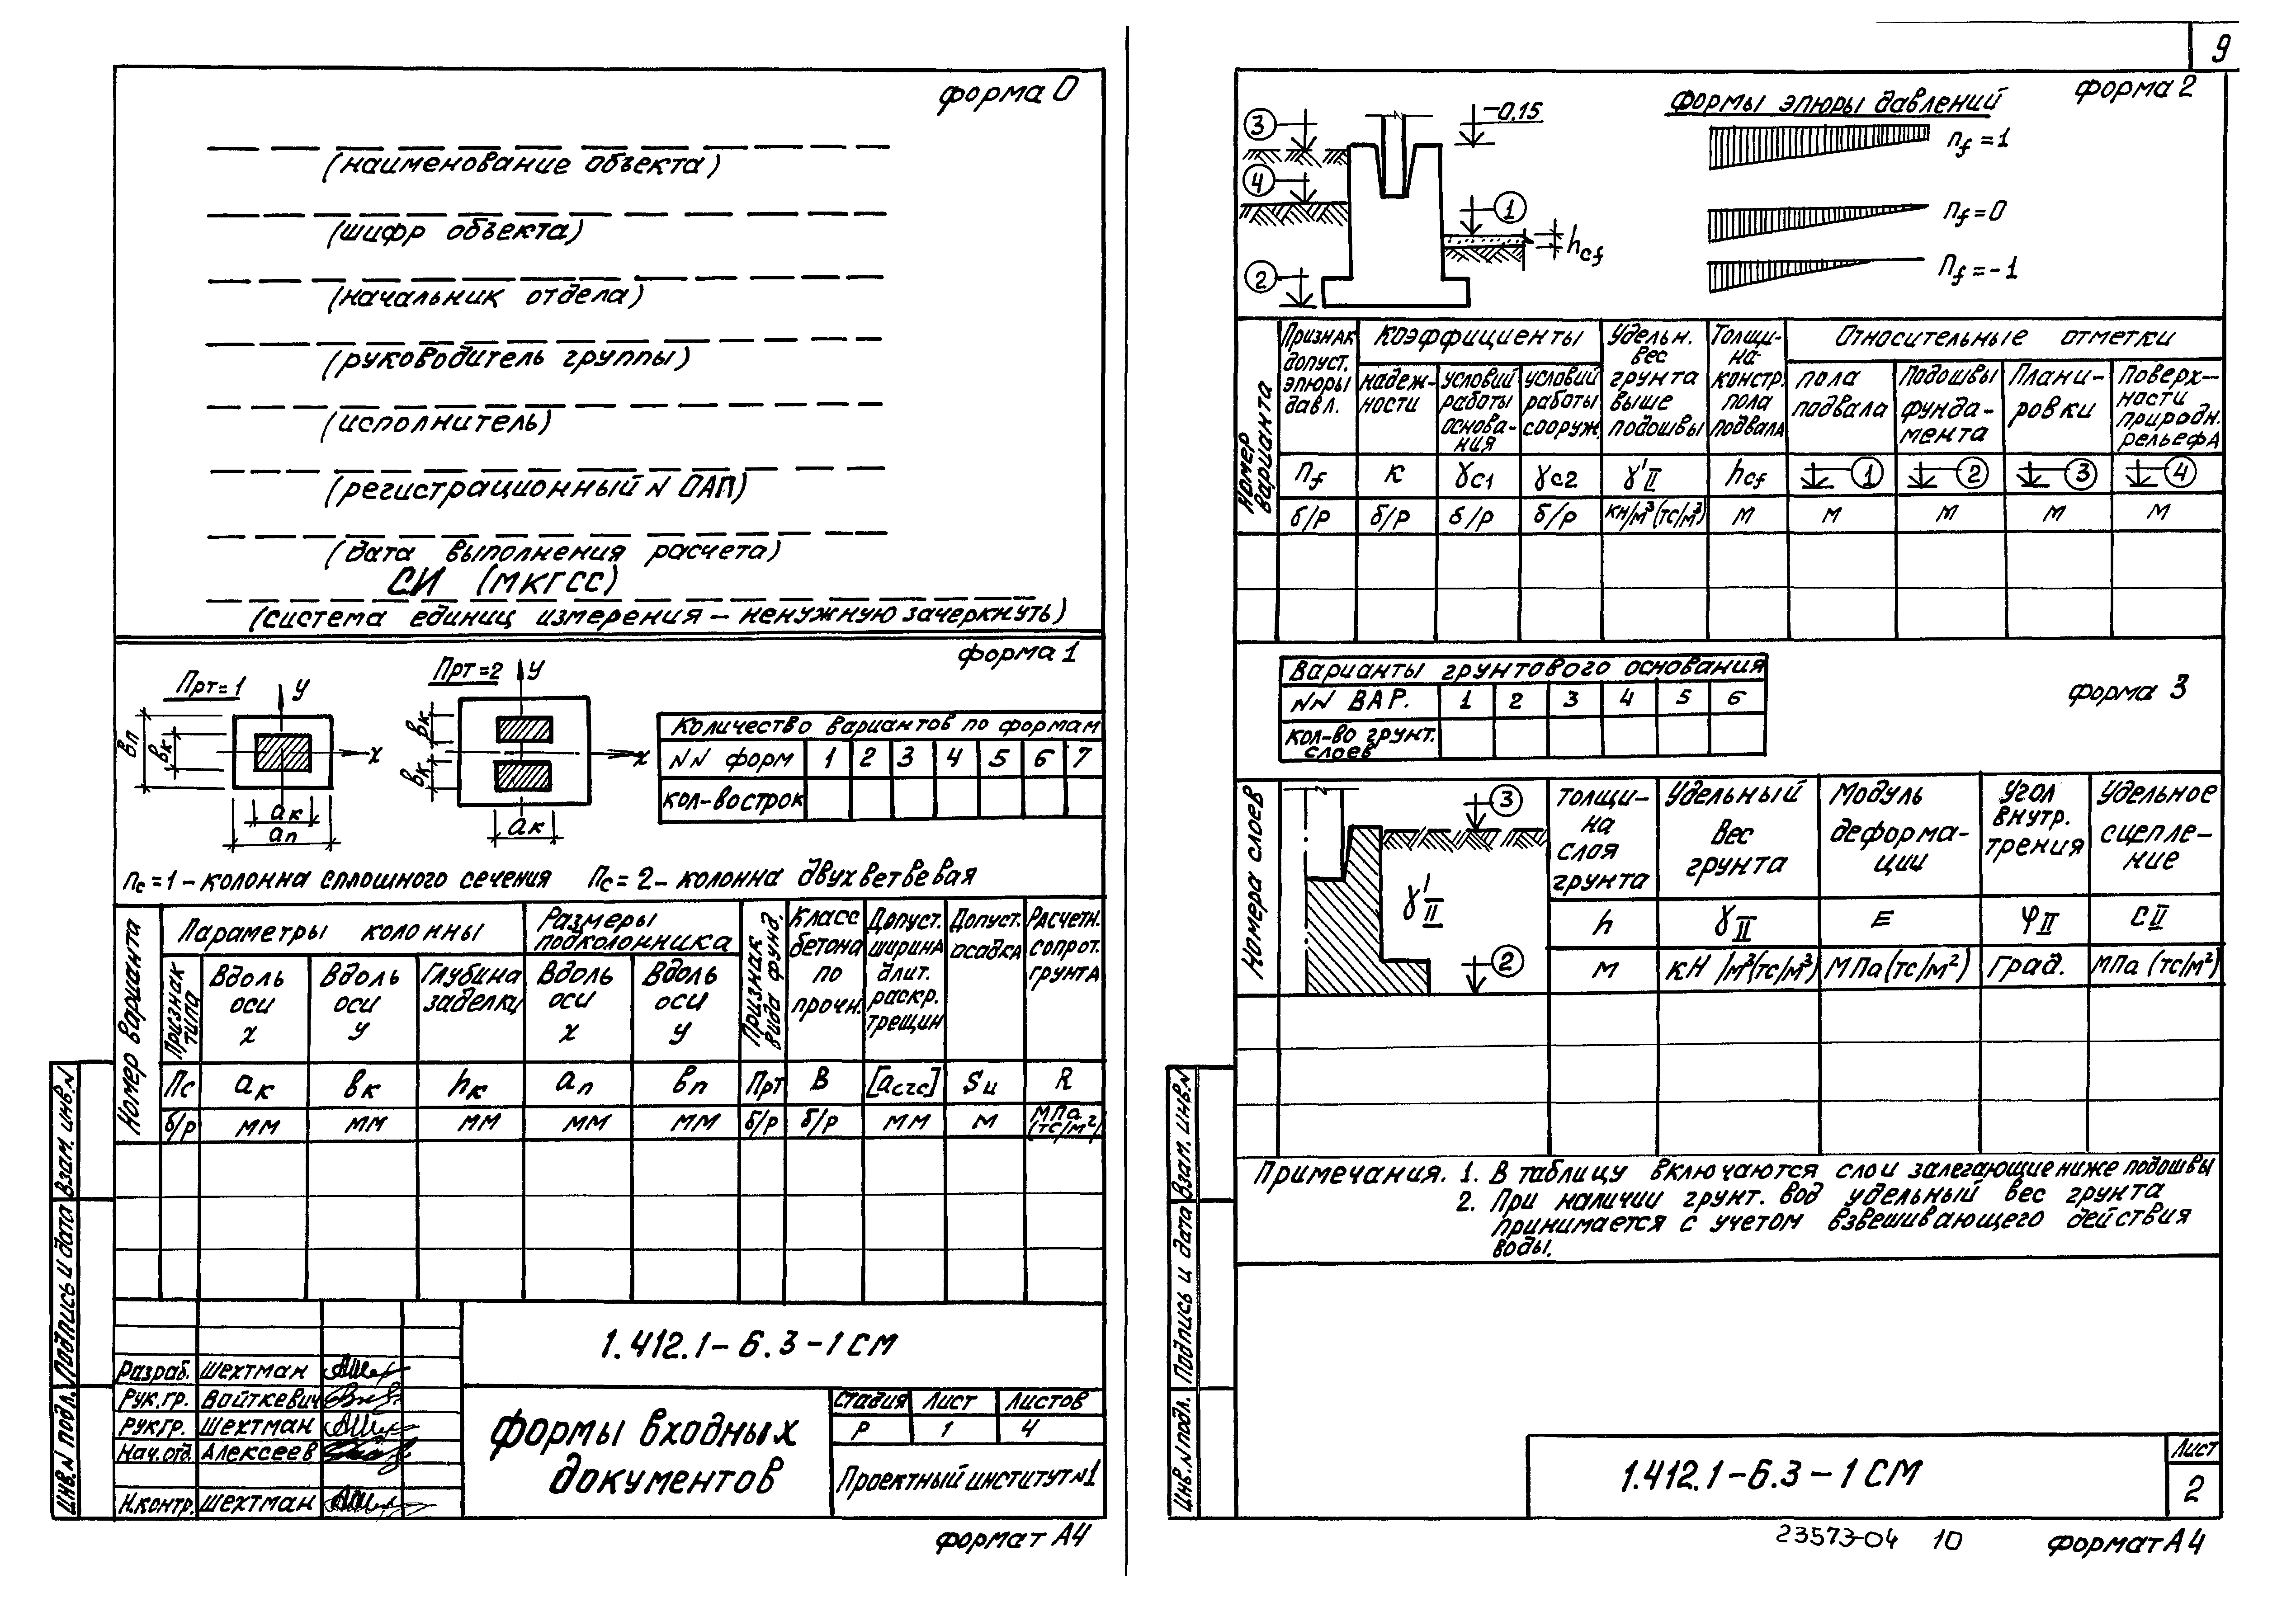 форма 0
(наименование объекта)
(шифр объекта)
(начальник отдела)
(руководитель группы)
(исполнитель)
(регистрационный N ОАП)
(дата выполнения расчета)
СИ (МКГСС)
(система единиц измерения – ненужную зачеркнуть)
форма 1
Прт=1
Прт=2
У
У
х
х
вп
вк
вк
вк
ак
ап
ак
Количество вариантов по формам
NN форм 1 2 3 4 5 6 7
кол-во строк
пс=1 – колонна сплошного сечения пс=2 – колонна двухветвевая
Номер варианта
Параметры колонны
Размеры подколонника
Признак вида фунд.
Класс бетона по прочн.
Допуст. ширина длит. раскр. трещин
Допуст. осадка
Расчетн. сопрот. грунта
Признак типа
Вдоль оси х
Вдоль оси У
Глубина заделки
Вдоль оси х
Вдоль оси У
Пс ак вк hк ап вп Прт В [acrc] Su R
б/р мм мм мм мм мм б/р б/р мм м МПа (тс/м²)
1.412.1-6.3-1СМ
Разраб. Шехтман
Рук.гр. Войткевич
Рук.гр. Шехтман
Нач.отд. Алексеев
Н.контр. Шехтман
формы входных
документов
Стадия Лист Листов
Р 1 4
Проектный институт N1
Инв.N подл. Подпись и дата Взам. инв.N
формат А4
9
форма 2
③
④
②
①
-0.15
hcf
Формы эпюры давлений
nf=1
nf=0
nf=-1
Номер варианта
Признак допуст. эпюры давл.
Коэффициенты
Удельн. вес грунта выше подошвы
Толщи-на констр. пола подвала
Относительные отметки
надеж-ности
условий работы основа-ния
условий работы сооруж.
пола подвала
Подошвы фунда-мента
Плани-ровки
Поверх-ности природн. рельефа
nf к γc1 γc2 γ'II hcf ① ② ③ ④
б/р б/р б/р б/р кН/м³(тс/м³) м м м м м
форма 3
Варианты грунтового основания
NN ВАР. 1 2 3 4 5 6
кол-во грунт. слоев
Номера слоев
③
γ'II
②
Толщи-на слоя грунта
Удельный вес грунта
Модуль деформа-ции
Угол внутр. трения
Удельное сцепле-ние
h γII Е φII СII
м кН/м³(тс/м³) МПа(тс/м²) Град. МПа (тс/м²)
Примечания. 1. В таблицу включаются слои залегающие ниже подошвы
2. При наличии грунт. вод удельный вес грунта
принимается с учетом взвешивающего действия
воды.
Инв.N подл. Подпись и дата Взам. инв.N
1.412.1-6.3-1СМ
Лист
2
23573-04 10
формат А4